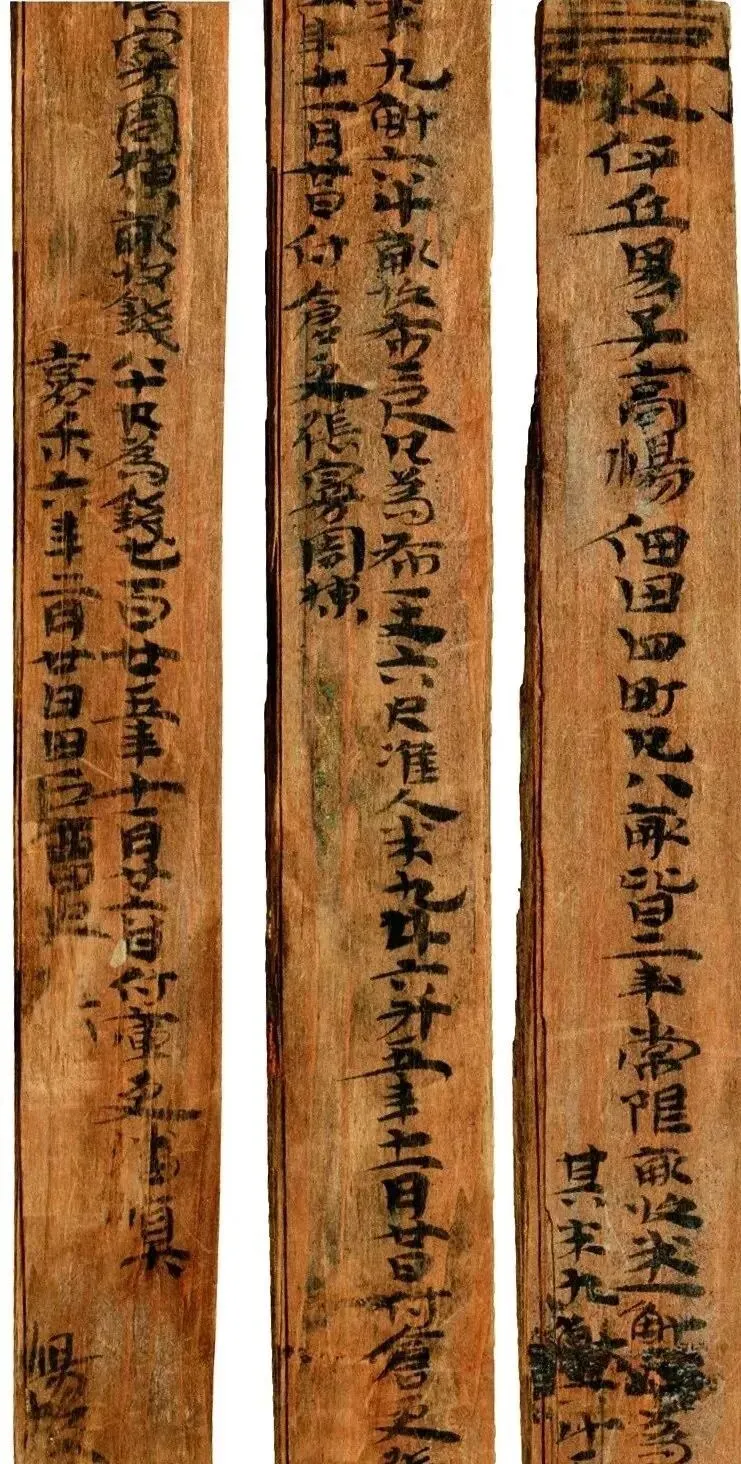 朼伻丘男子高楊佃田四町凡八畝皆二年常限畝收米一斛為
其米九斛六斗
米九斛六斗畝收布二尺凡為布一丈六尺准入米九斗六升五年十二月廿日付倉吏張
五年十二月廿日付倉吏張曼周棟
張曼周棟畝收錢八十凡為錢七百廿五年十一月廿六日付庫吏潘慎
嘉禾六年二月廿日田戶曹史